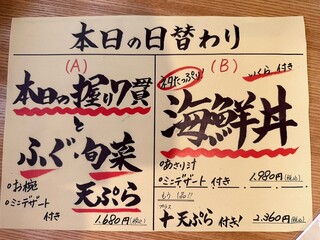 本日の日替わり
(A)
本日の握り7貫
と
ふぐ・旬菜
天ぷら
○お椀
○ミニデザート
付き
1.680円(税込)
(B)
ネタたっぷり!
いくら付き
海鮮丼
○あさり汁
○ミニデザート付き
1.980円(税込)
もう一品!!
プラス
+天ぷら付き!
2.360円(税込)